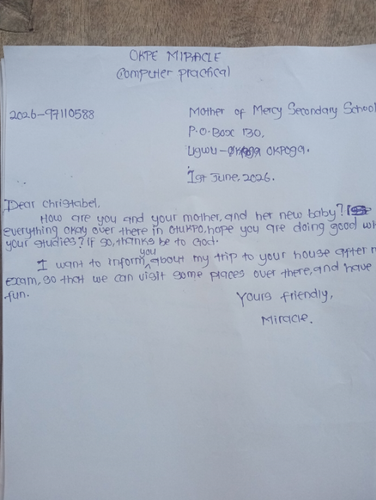 OKPE MIRACLE
Computer practical
2026-97110588
Mother of Mercy Secondary School
P.O.Box 130,
Ugwu- Okpoga.
1st June, 2026.
Dear Christabel,
How are you and your mother, and her new baby? Is
everything okay over there in Otukpo, hope you are doing good
your studies? If so, thanks be to God.
I want to inform you about my trip to your house after
exam, so that we can visit some places over there, and have
fun.
Yours friendly,
Miracle.